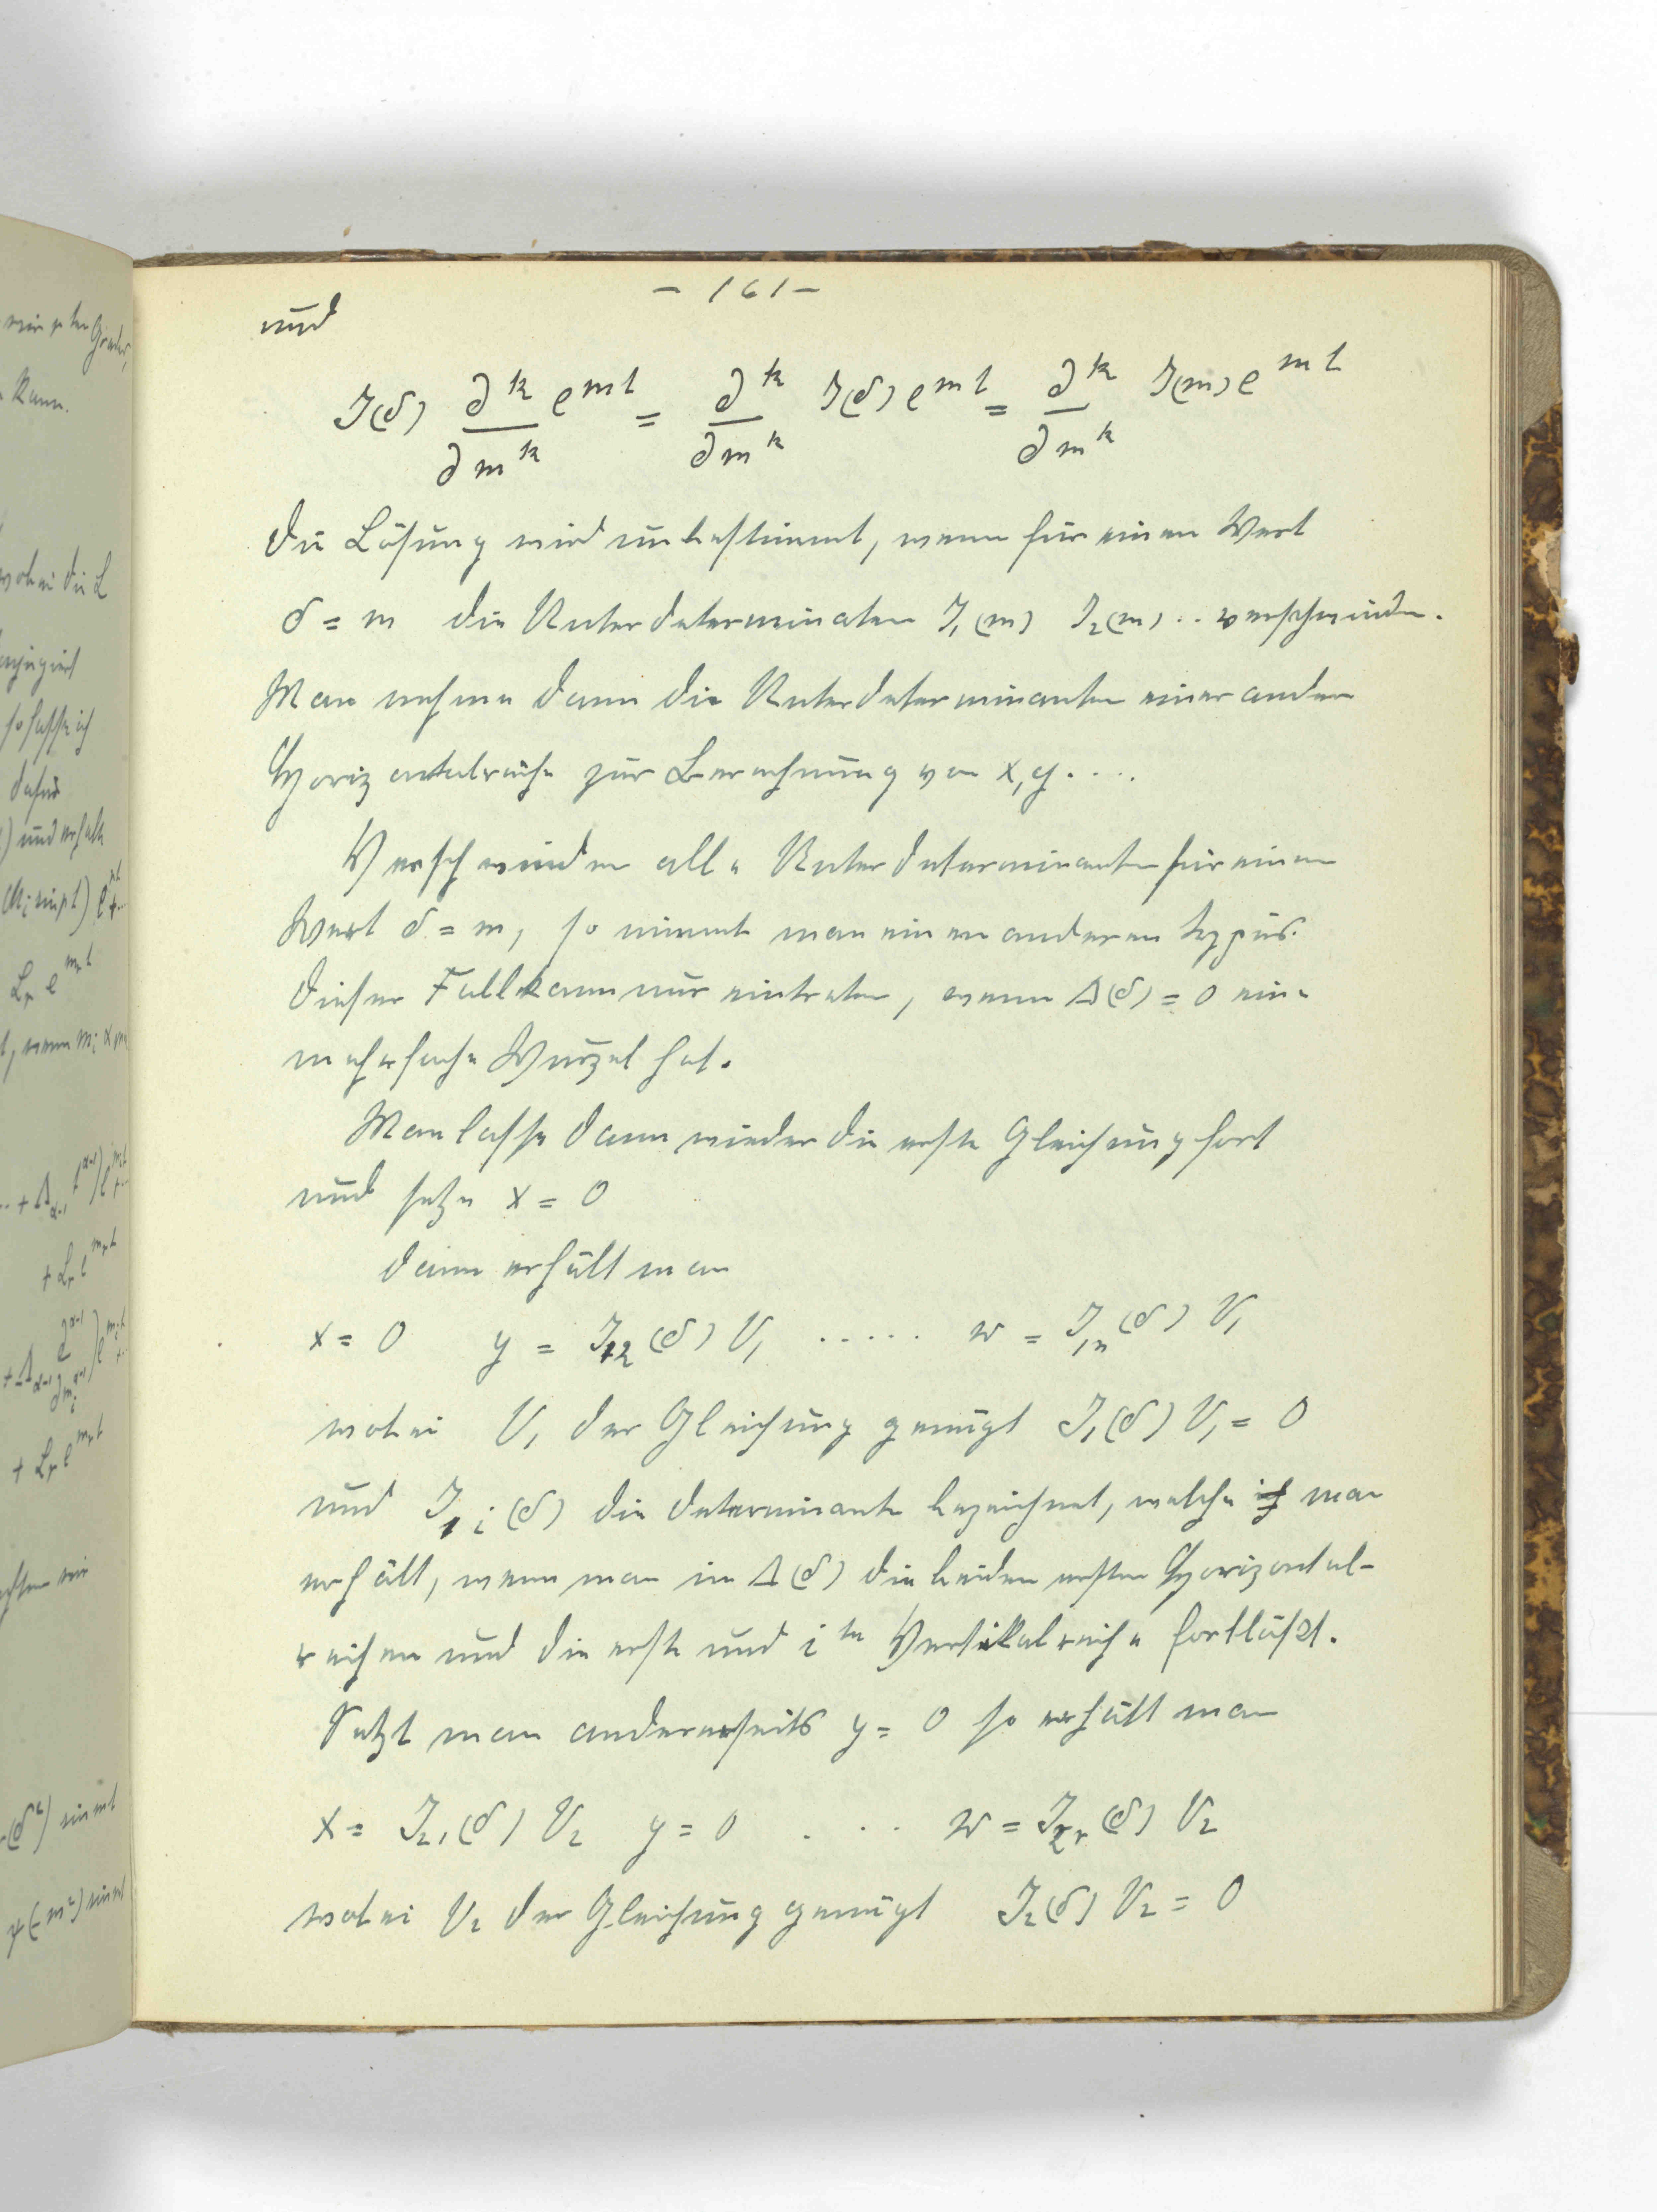 – 161 –
und
J(δ) ∂^k/∂m^k e^{mt} = ∂^k/∂m^k J(δ) e^{mt} = ∂^k/∂m^k J(m) e^{mt}
Die Lösung wird unbestimmt, wenn für einen Wert
δ = m die Unterdeterminaten J₁(m) J₂(m) .. verschwinden.
Man nehme dann die Unterdeterminanten einer andern
Horizontalreihe zur Berechnung von x, y ....
Verschwinden alle Unterdeterminanten für einen
Wert δ = m, so nimmt man einen anderen Typus.
Dieser Fall kann nur eintreten, wenn Δ(δ) = 0 eine
mehrfache Wurzel hat.
Man lasse dann wieder die erste Gleichung fort
und setze x = 0
dann erhält man
x = 0 y = J₁₂(δ) V₁ ..... w = J₁ₙ(δ) V₁
wobei V₁ der Gleichung genügt J₁(δ) V₁ = 0
und J₁ᵢ(δ) die Determinante bezeichnet, welche man
erhält, wenn man in Δ(δ) die beiden ersten Horizontal-
reihen und die erste und i^{te} Vertikalreihe fortläßt.
Setzt man andererseits y = 0 so erhält man
x = J₂₁(δ) V₂ y = 0 . .. w = J₂ᵣ(δ) V₂
wobei V₂ der Gleichung genügt J₂(δ) V₂ = 0